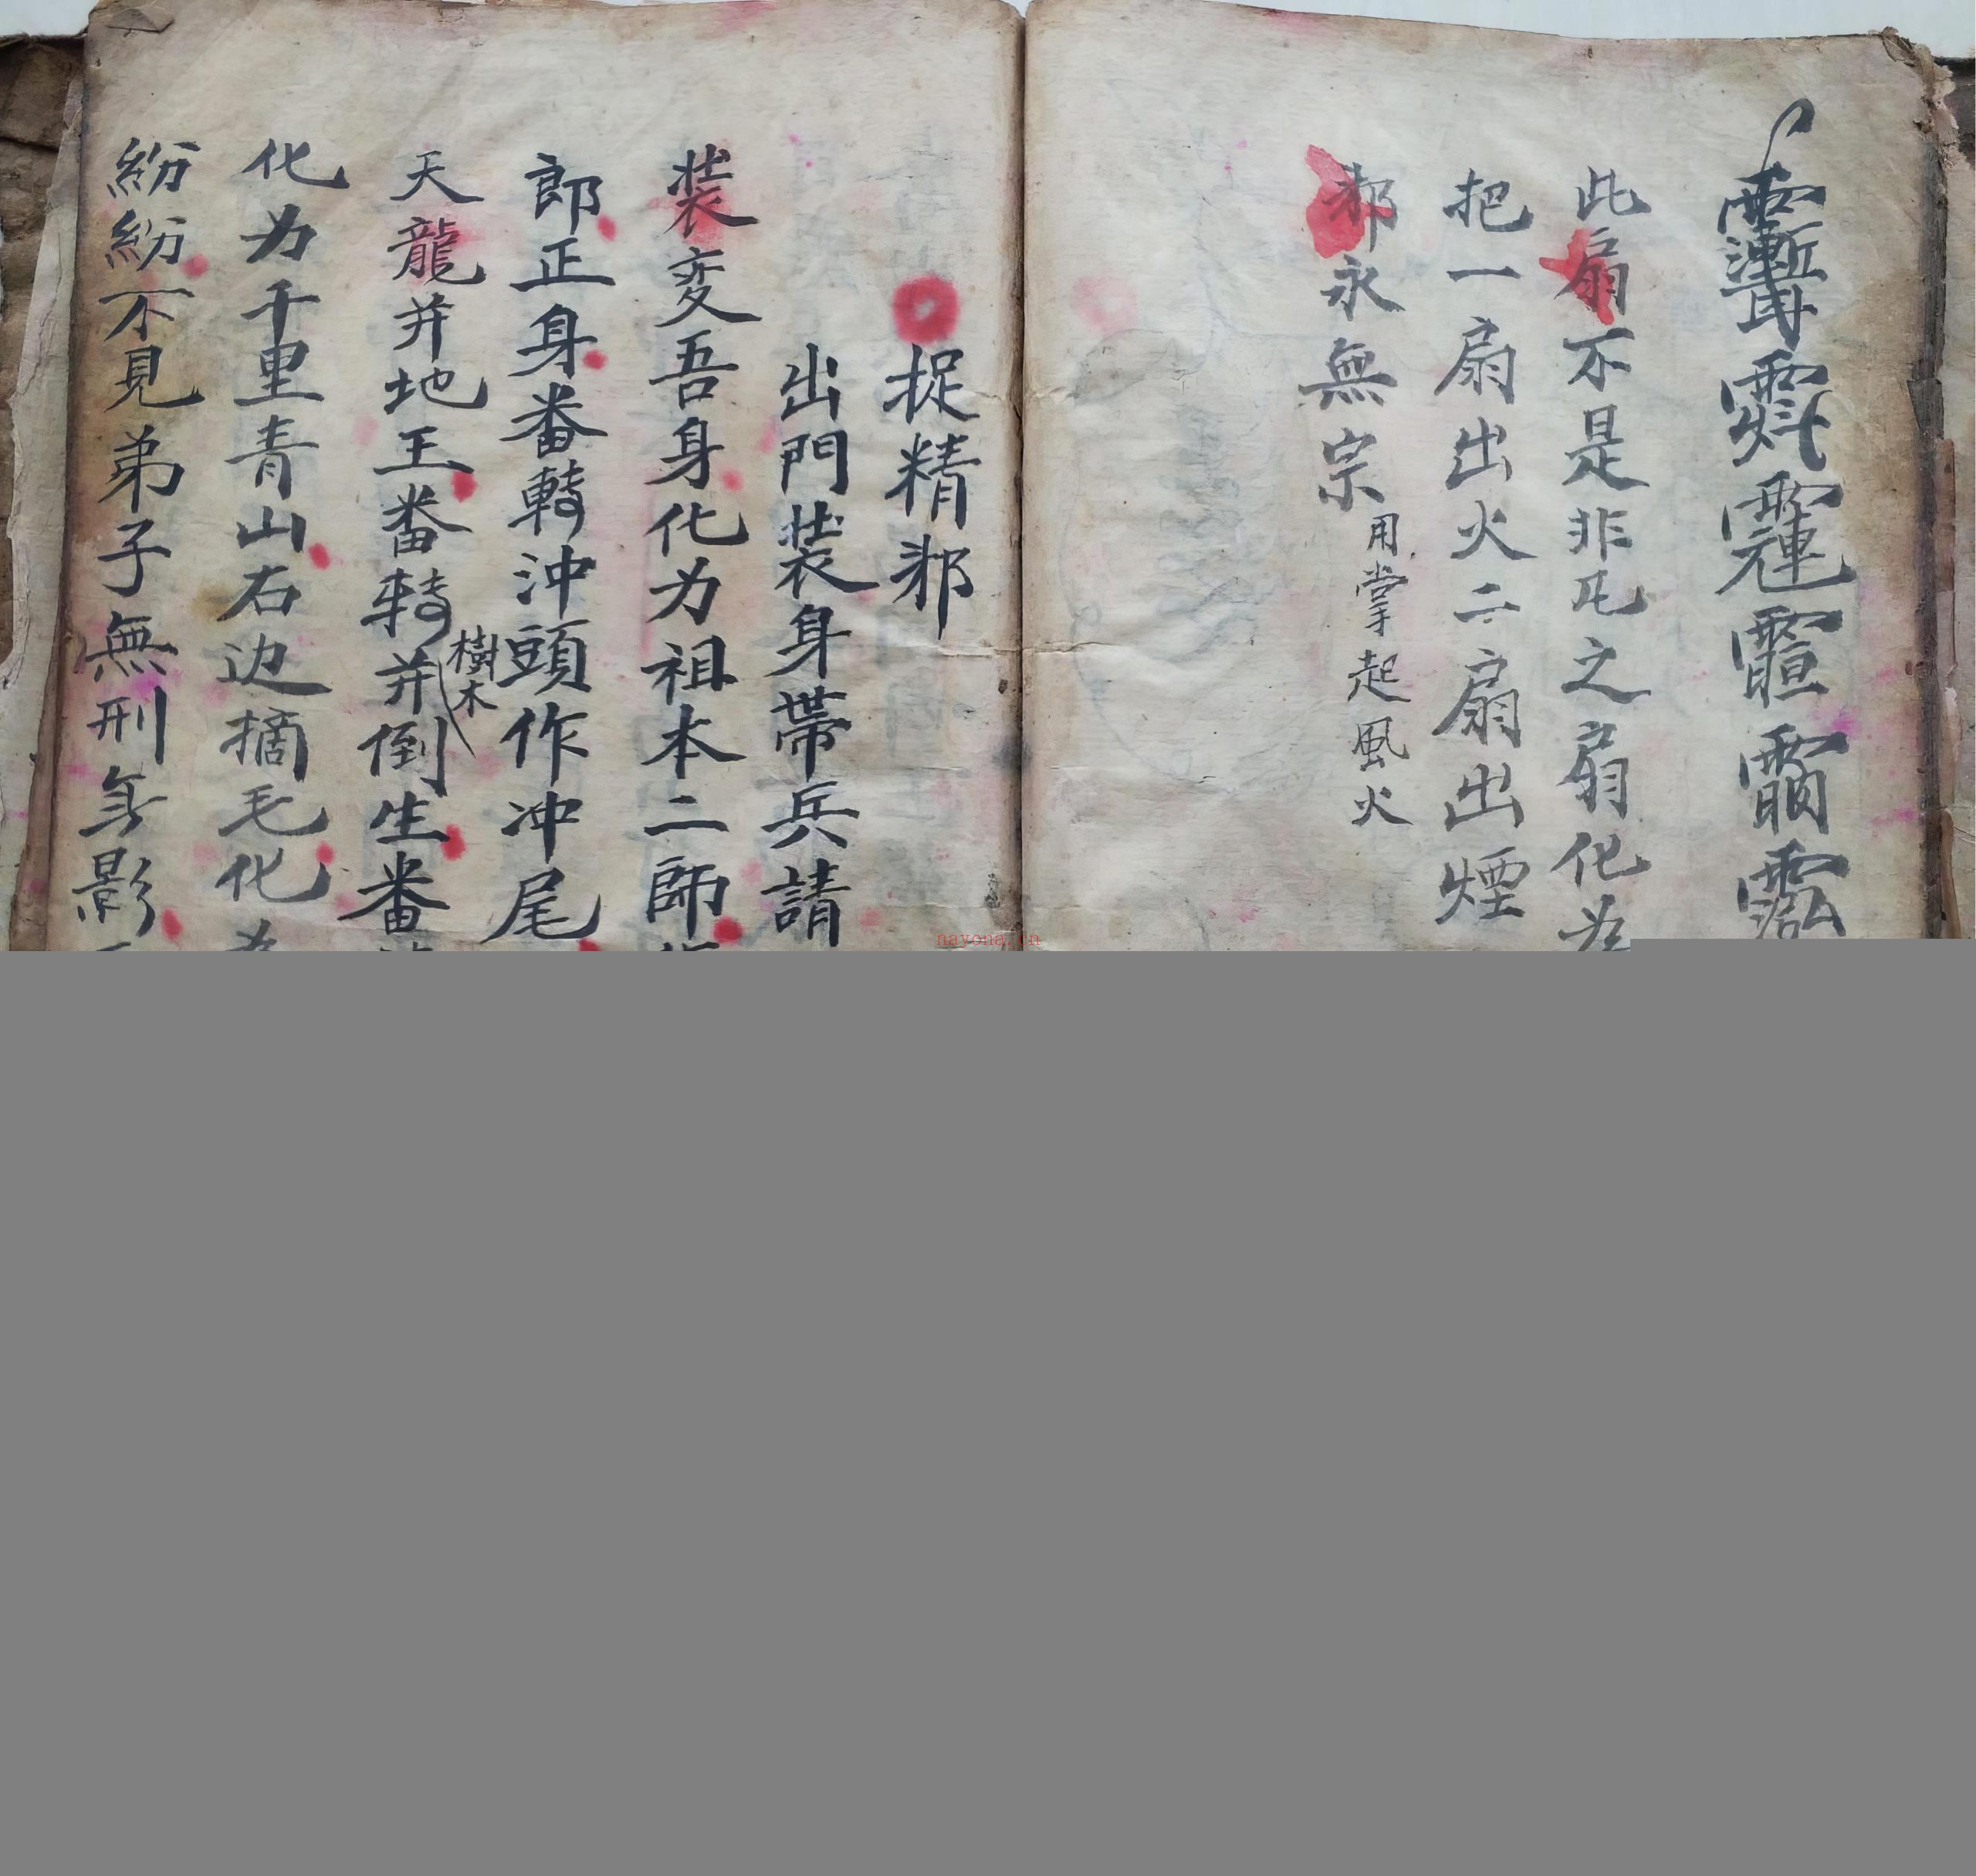 此扇不是非凡之扇化为
把一扇出火二扇出煙
邪永無宗
用掌起風火
捉精邪
出門裝身帶兵請
裝变吾身化为祖本二師
郎正身番轉沖頭作冲尾
樹木
天龍并地王番轉并倒生番
化为千里青山石边摘毛化为
紛紛不見弟子無刑無影
nayona.cn